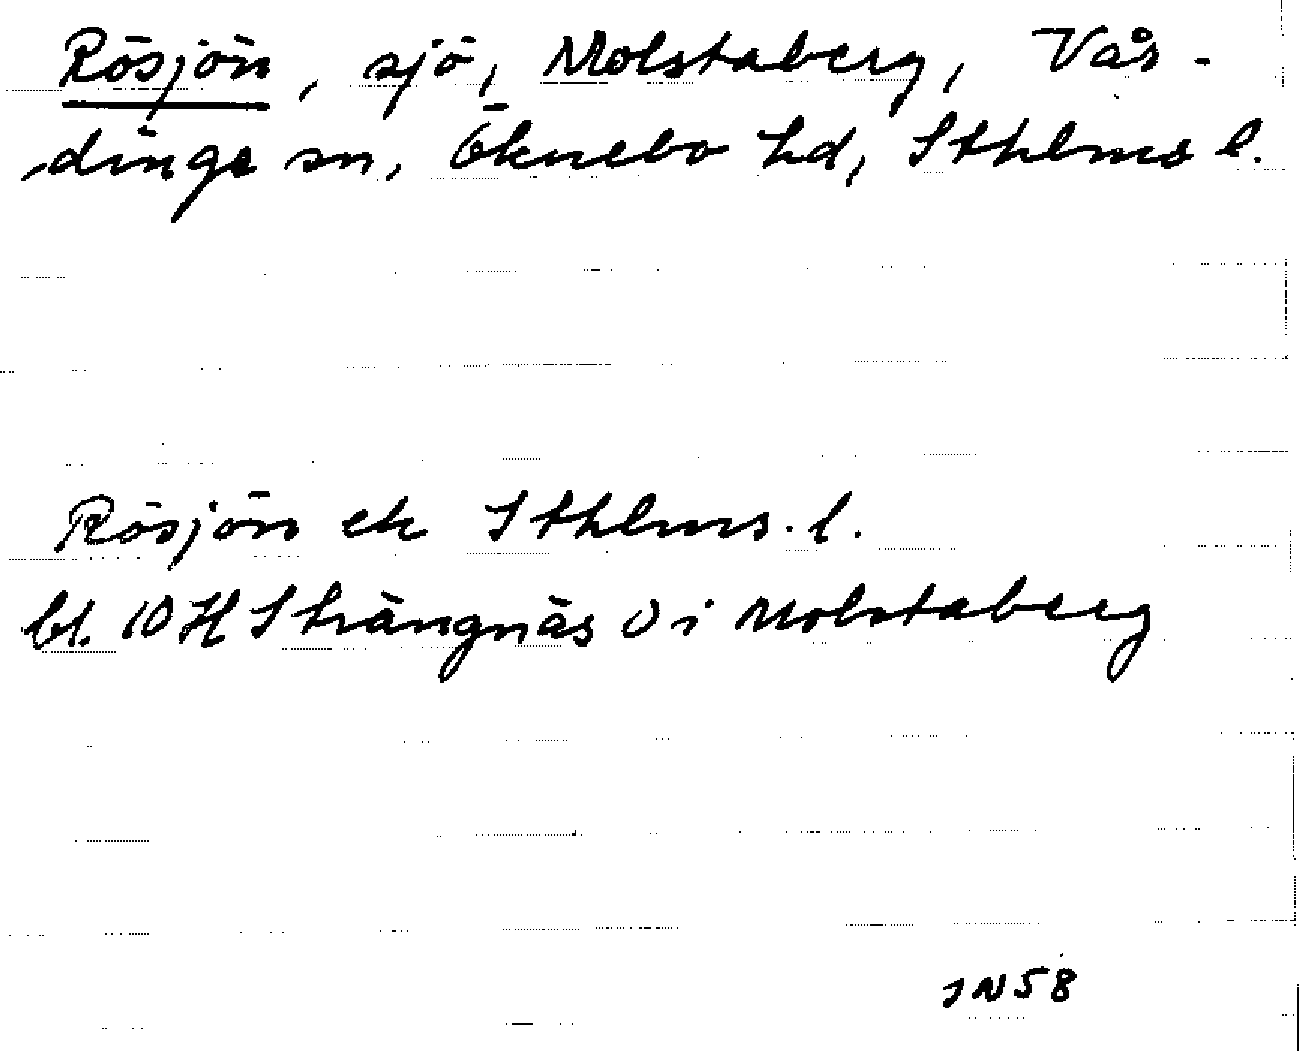 Rösjön, sjö, Molstaberg, Vår-
dinge sn, Öknebo hd, Sthlms l.
Rösjön ek Sthlms. l.
bl. 10 H Strängnäs O i Molstaberg
JN58